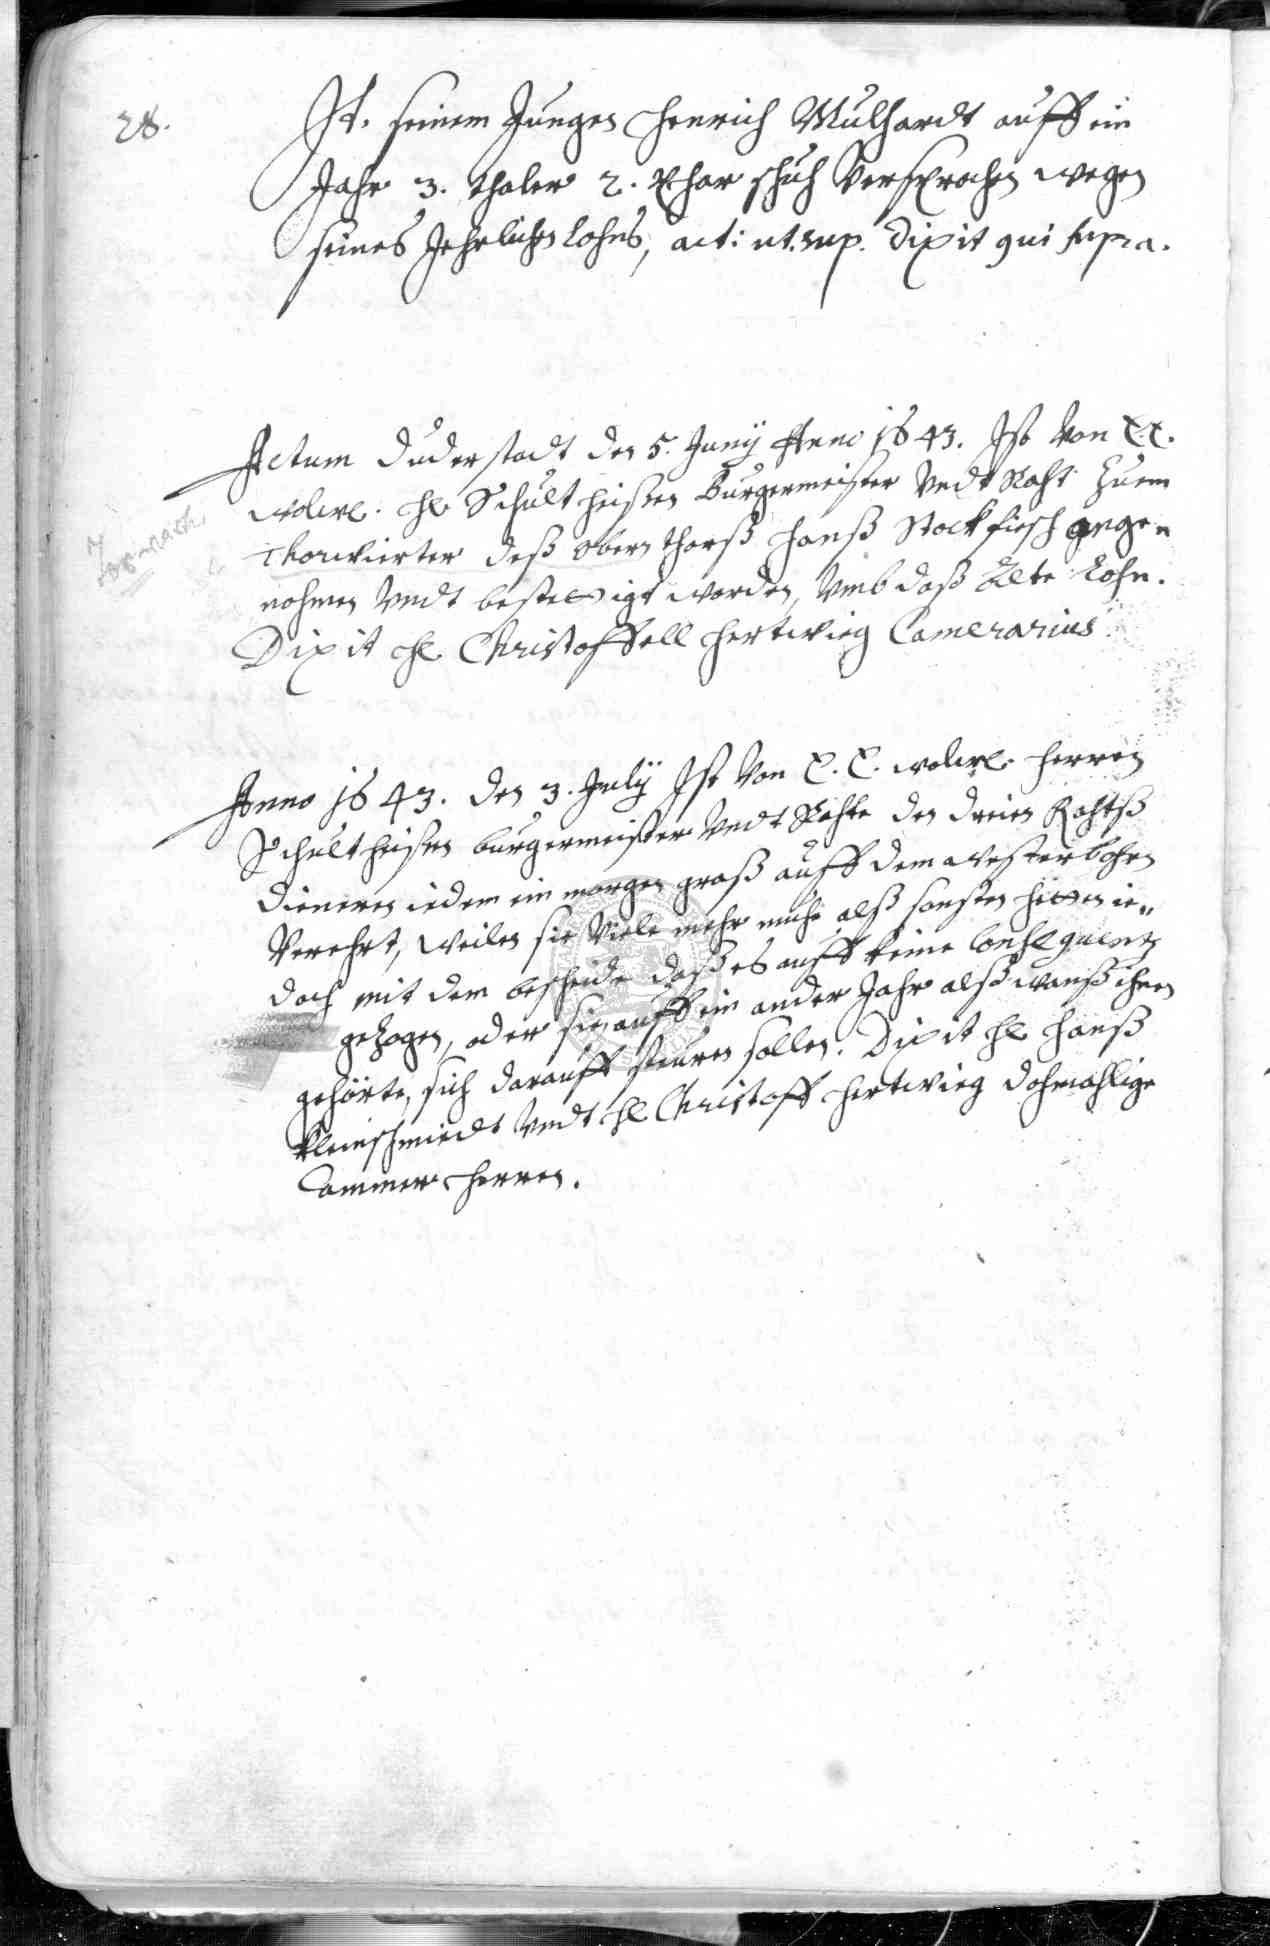 28.
It. seinem Jungen Henrich Mulhardt auff ein
Jahr 3. thaler 2. Phar schuh Versprochen wegen
seines Jehrlichen Lohns, act: ut. sup. Dixit qui supra.
Actum Duderstadt den 5. Junij Anno 1643. Ist Von E. E.
wolw. H. Schultheißen Burgermeister Undt Raht Zuem
Thorwierter deß obern thorß Hanß Stockfisch ange
nohmen Undt bestettigt worden, Umb daß Alte Lohn.
Dixit H. Christoffell Hertwieg Camerarius
Anno 1643. den 3. Julij Ist Von E. E. wolw. Herren
Schultheißen burgermeister Undt Rahte den dreien Rahtß
dieneren iedem ein morgen graß auff dem westerbohrn
Verehrt, weilen sie Viele mehr muhe alß sonsten hetten ie„
doch mit dem bescheide daß es auff keine Consequentz
gezogen, oder sie auff ein ander Jahr alß wanß ihnen
gehörte, sich darauff steuren sollen. Dixit H. Hanß
Kleinschmiedt Undt H. Christoff Hertwieg dohmahlige
Cammer Herren.